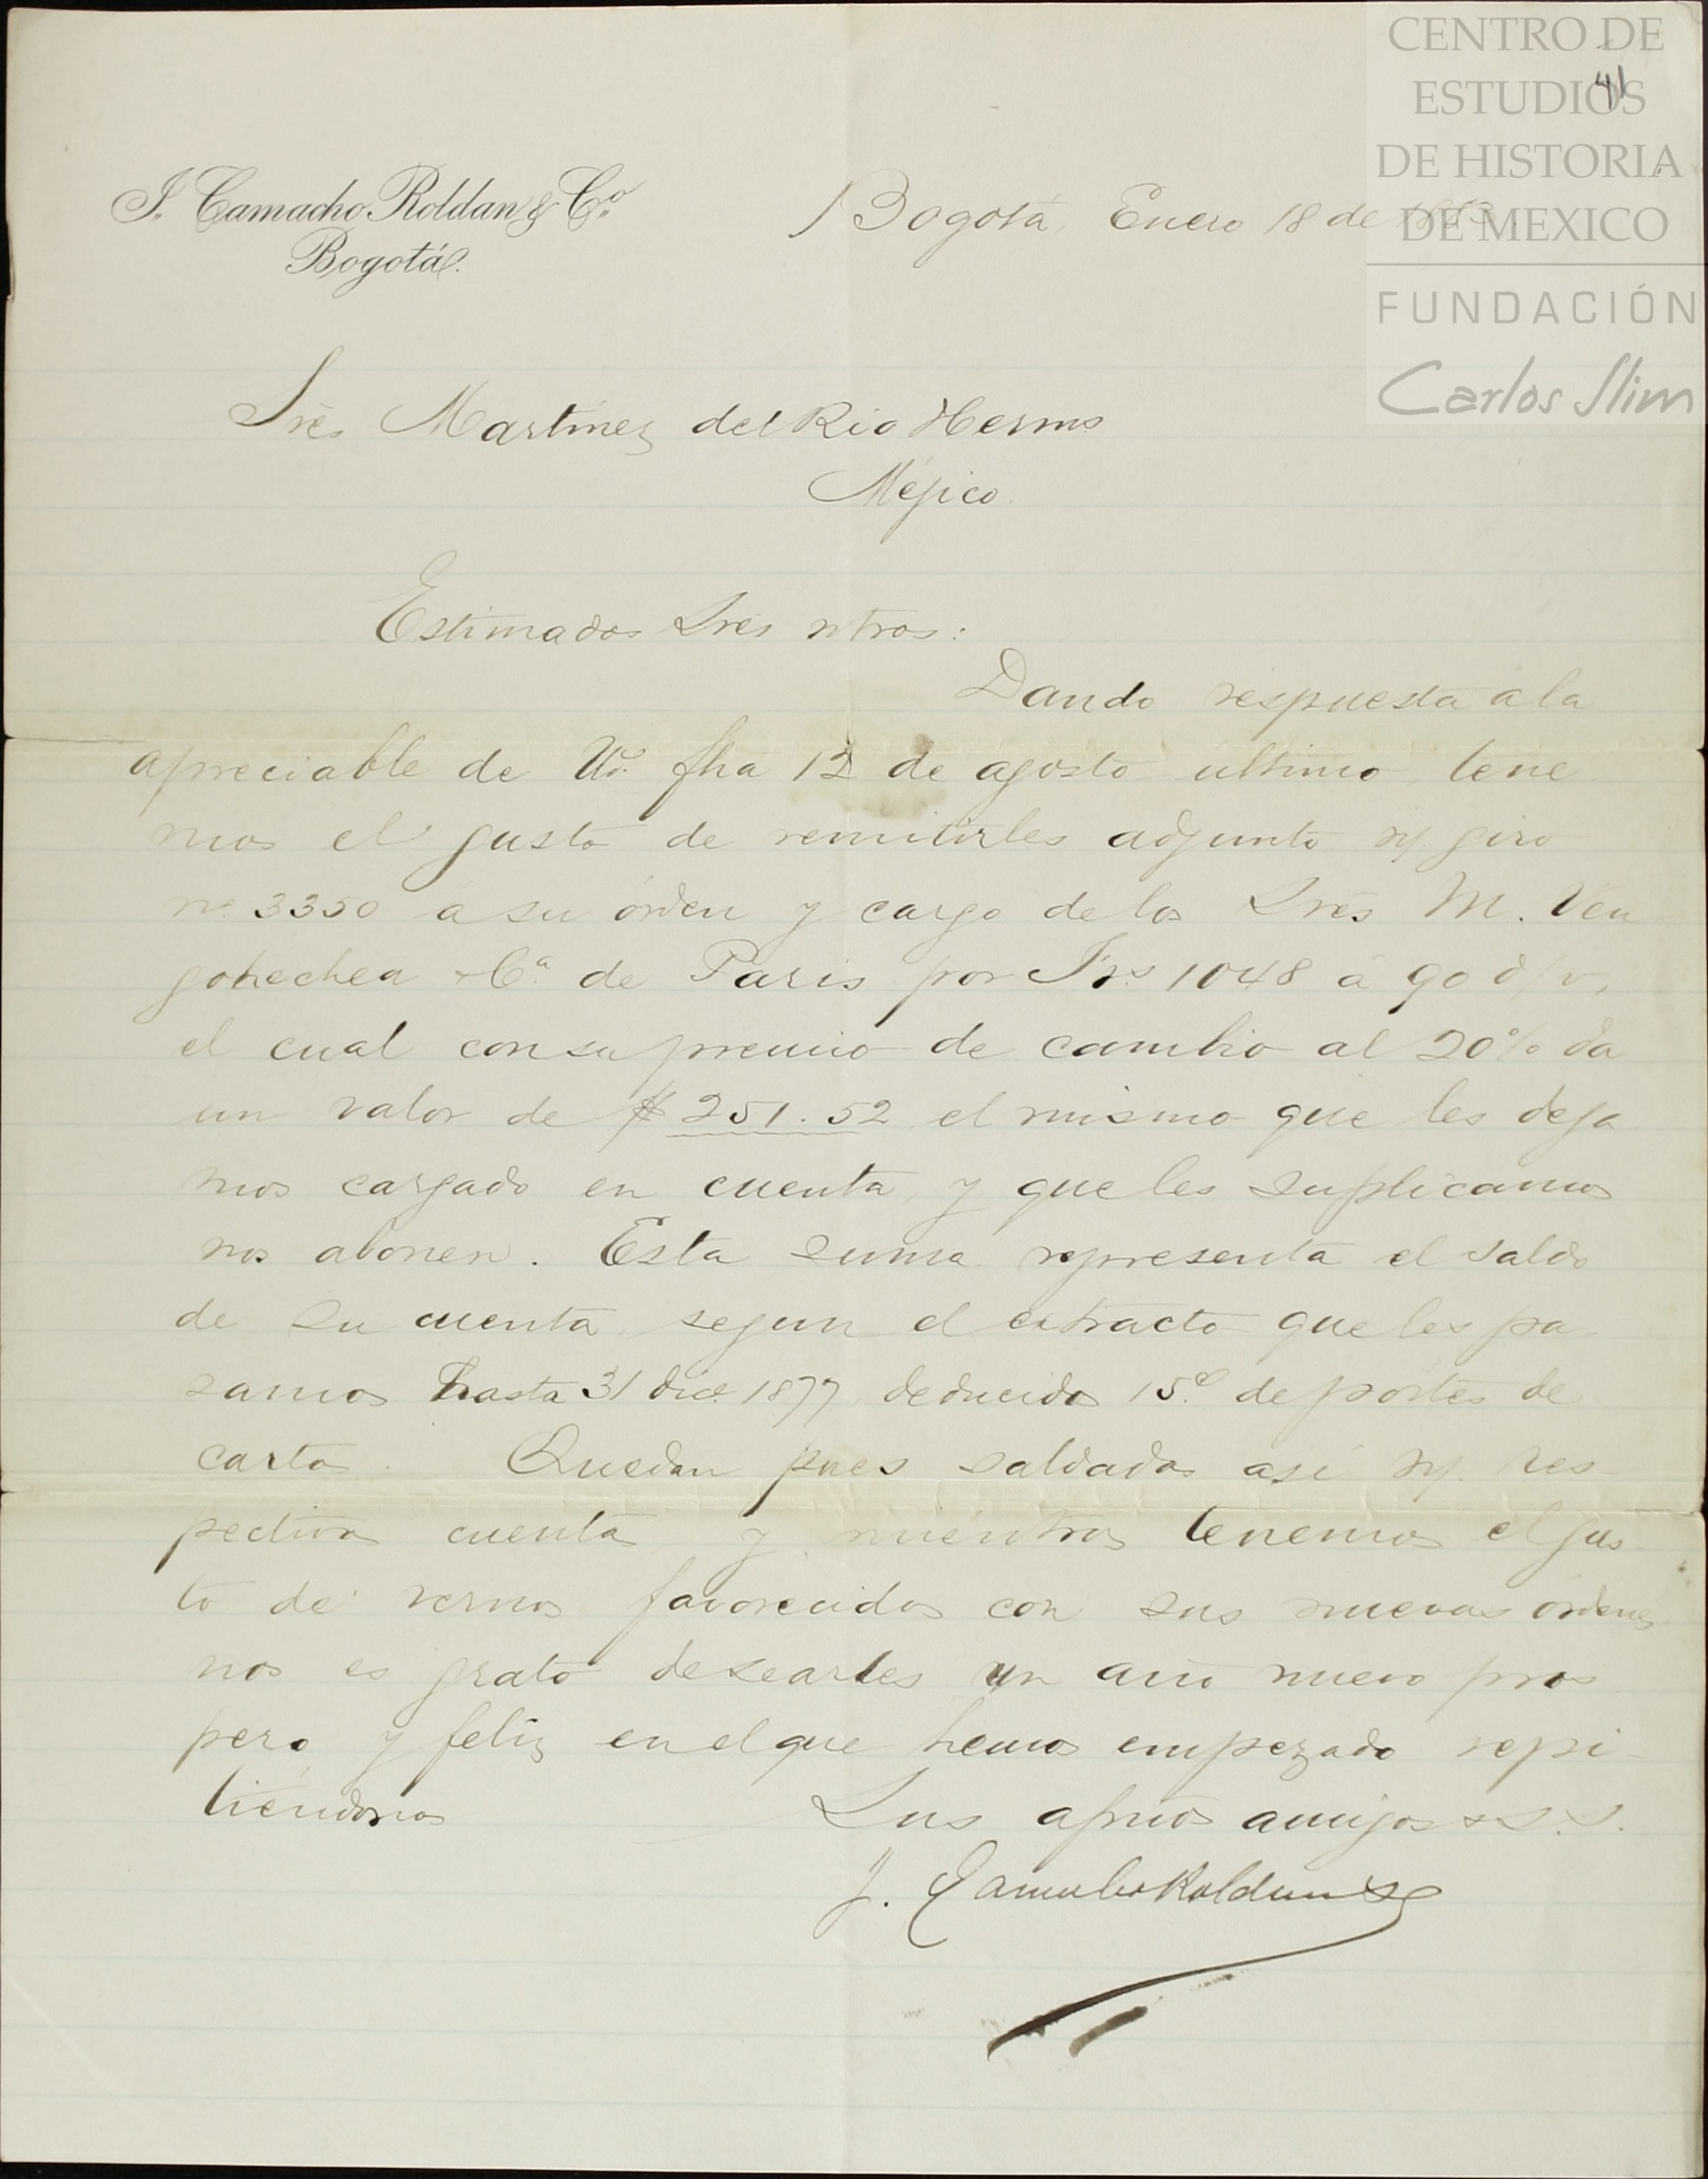 CENTRO DE
ESTUDIOS
DE HISTORIA
DE MEXICO
FUNDACIÓN
Carlos Slim
41
J. Camacho Roldan & Cº
Bogotá.
Bogotá, Enero 18 de
Sres Martinez del Rio Hermos
Méjico.
Estimados Sres ntros:
Dando respuesta á la
apreciable de Us. fha 12 de agosto último, tene
mos el gusto de remitirles adjunto n/. giro
nº 3350 á su órden y cargo de los Sres M. Ven
gohechea & Cª de Paris por Frs 1048 á 90 d/v,
el cual con su premio de cambio al 20% da
un valor de $ 251.52 el mismo que les deja
mos cargado en cuenta, y que les suplicamos
nos abonen. Esta suma representa el saldo
de su cuenta segun el extracto que les pa
samos hasta 31 dice 1877 deducidos 15c. de portes de
cartas. Quedan pues saldadas asi n/. res
pectivas cuentas y miéntras tenemos el gus
to de vernos favorecidos con sus nuevas órdenes
nos es grato desearles un año nuevo pros
pero y feliz en el que hemos empezado repi
tiéndonos Sus afmos amigos & S. S.
J. Camacho Roldan & Co